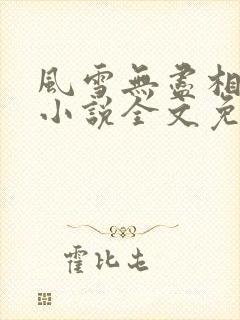 風雪無盡相
小說全文免
霍比屯